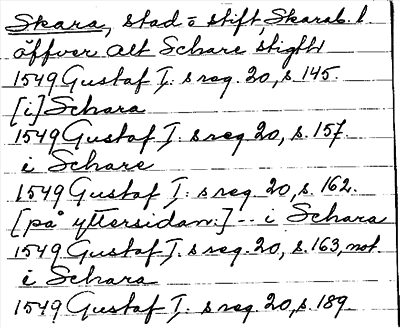 Skara, stad o stift, Skarab. l
öffver alt Schare stigtt
1549 Gustaf I: s reg. 20, s. 145.
[i] Schara
1549 Gustaf I: s reg. 20, s. 157.
i Schare
1549 Gustaf I: s reg. 20, s. 162.
[på yttersidan:] -- i Schara
1549 Gustaf I. s reg. 20, s. 163, not
i Schara
1549 Gustaf I: s reg. 20, s. 189